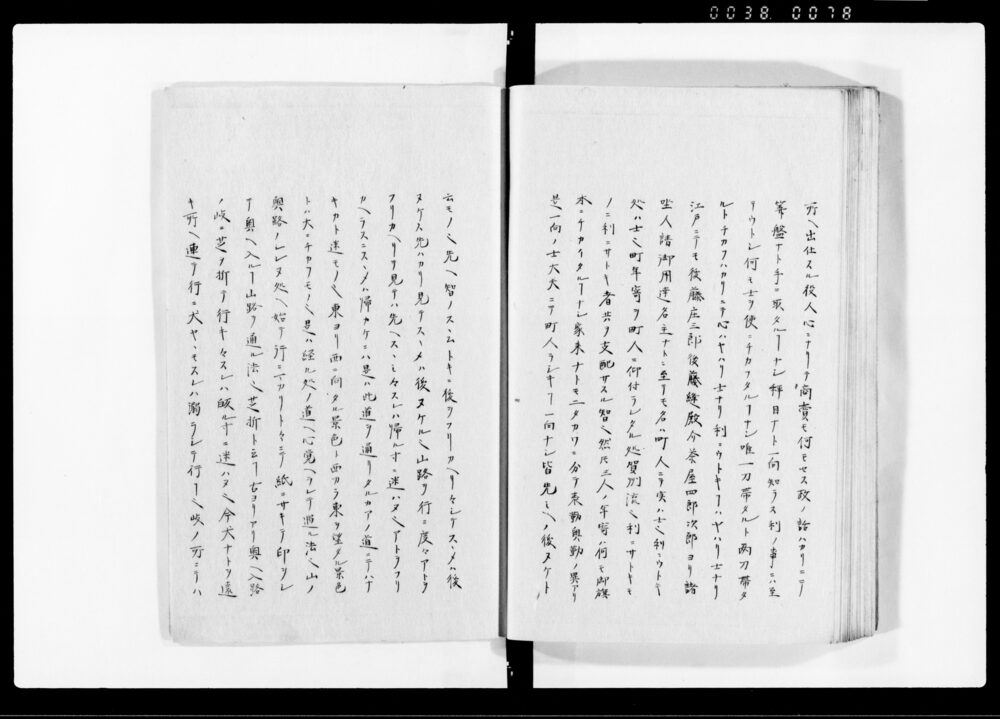 0038 0078
所ヘ出仕スル役人心ニナリテ商賣モ何モセス政ノ話ハカリニテ
算盤ナト手ニ取タルヿナシ秤目ナト一向知ラス利ノ事ニハ至
テウトシ何モ士ヲ使ニチカフタルヿナシ唯一刀帯タルト両刀帯タ
ルトチカフハカリニテ心ハヤハリ士ナリ利ニウトキフハヤハリ士ナリ
江戸ニテモ後藤庄三郎後藤縫殿今茶屋四郎次郎ヨリ諸
坐人諸御用達名主ナトニ至リテモ名ハ町人ニテ実ハ士也利ニウトシ
処ハ士也町年寄ヲ町人ニ仰付ラレタル処賀別流也利ニサトキモ
ノニ利ニサトキ者共ヲ支配サスル智也然トモ三人ノ年寄ハ何モ御旗
本ニチカイタルヿナシ家来ナトモニタカワニ分テ表勤奥勤ノ異アリ
是一向ノ士大夫ニテ町人ラシキヿ一向ナシ皆先ヘノ後ヌケト
云モノ也先ヘ智ノスヽムトキニ後ヲフリカヘリ々シテスヽメハ後
ヌケス先ハカリ見テスヽメハ後ヌケル也山路ヲ行ニ度々アトヲ
フリカヘリテ見テハ先ヘスヽミ々スレハ帰ル寸ニ迷ハヌ也アトヲフリ
カヘラスニスヽメハ帰カケニハ是ハ此道ヲ通リタルカアノ道ニテハナ
キカト迷モノ也東ヨリ西ニ向タル景色ト西カラ東ヲ望タル景色
トハ大ニチカフモノ也是ハ経ル処ノ道ヘ心覚ヘラシテ通ル法也山ノ
奥路ノシレヌ処ヘ始テ行ニハカリトヽニテ紙ニサキテ印ヲシ
テ奥ヘ入ルヿ山路ヲ通ル法也芝折ト云ヿ古ヨリアリ奥ヘ入路
ノ岐ニ芝ヲ折テ行キ々スレハ皈ル寸ニ迷ハヌ也今犬ナトヲ遠
キ所ヘ連テ行ニ犬ヤヽモスレハ溺ラシテ行ヿ也岐ノ所ニテハ